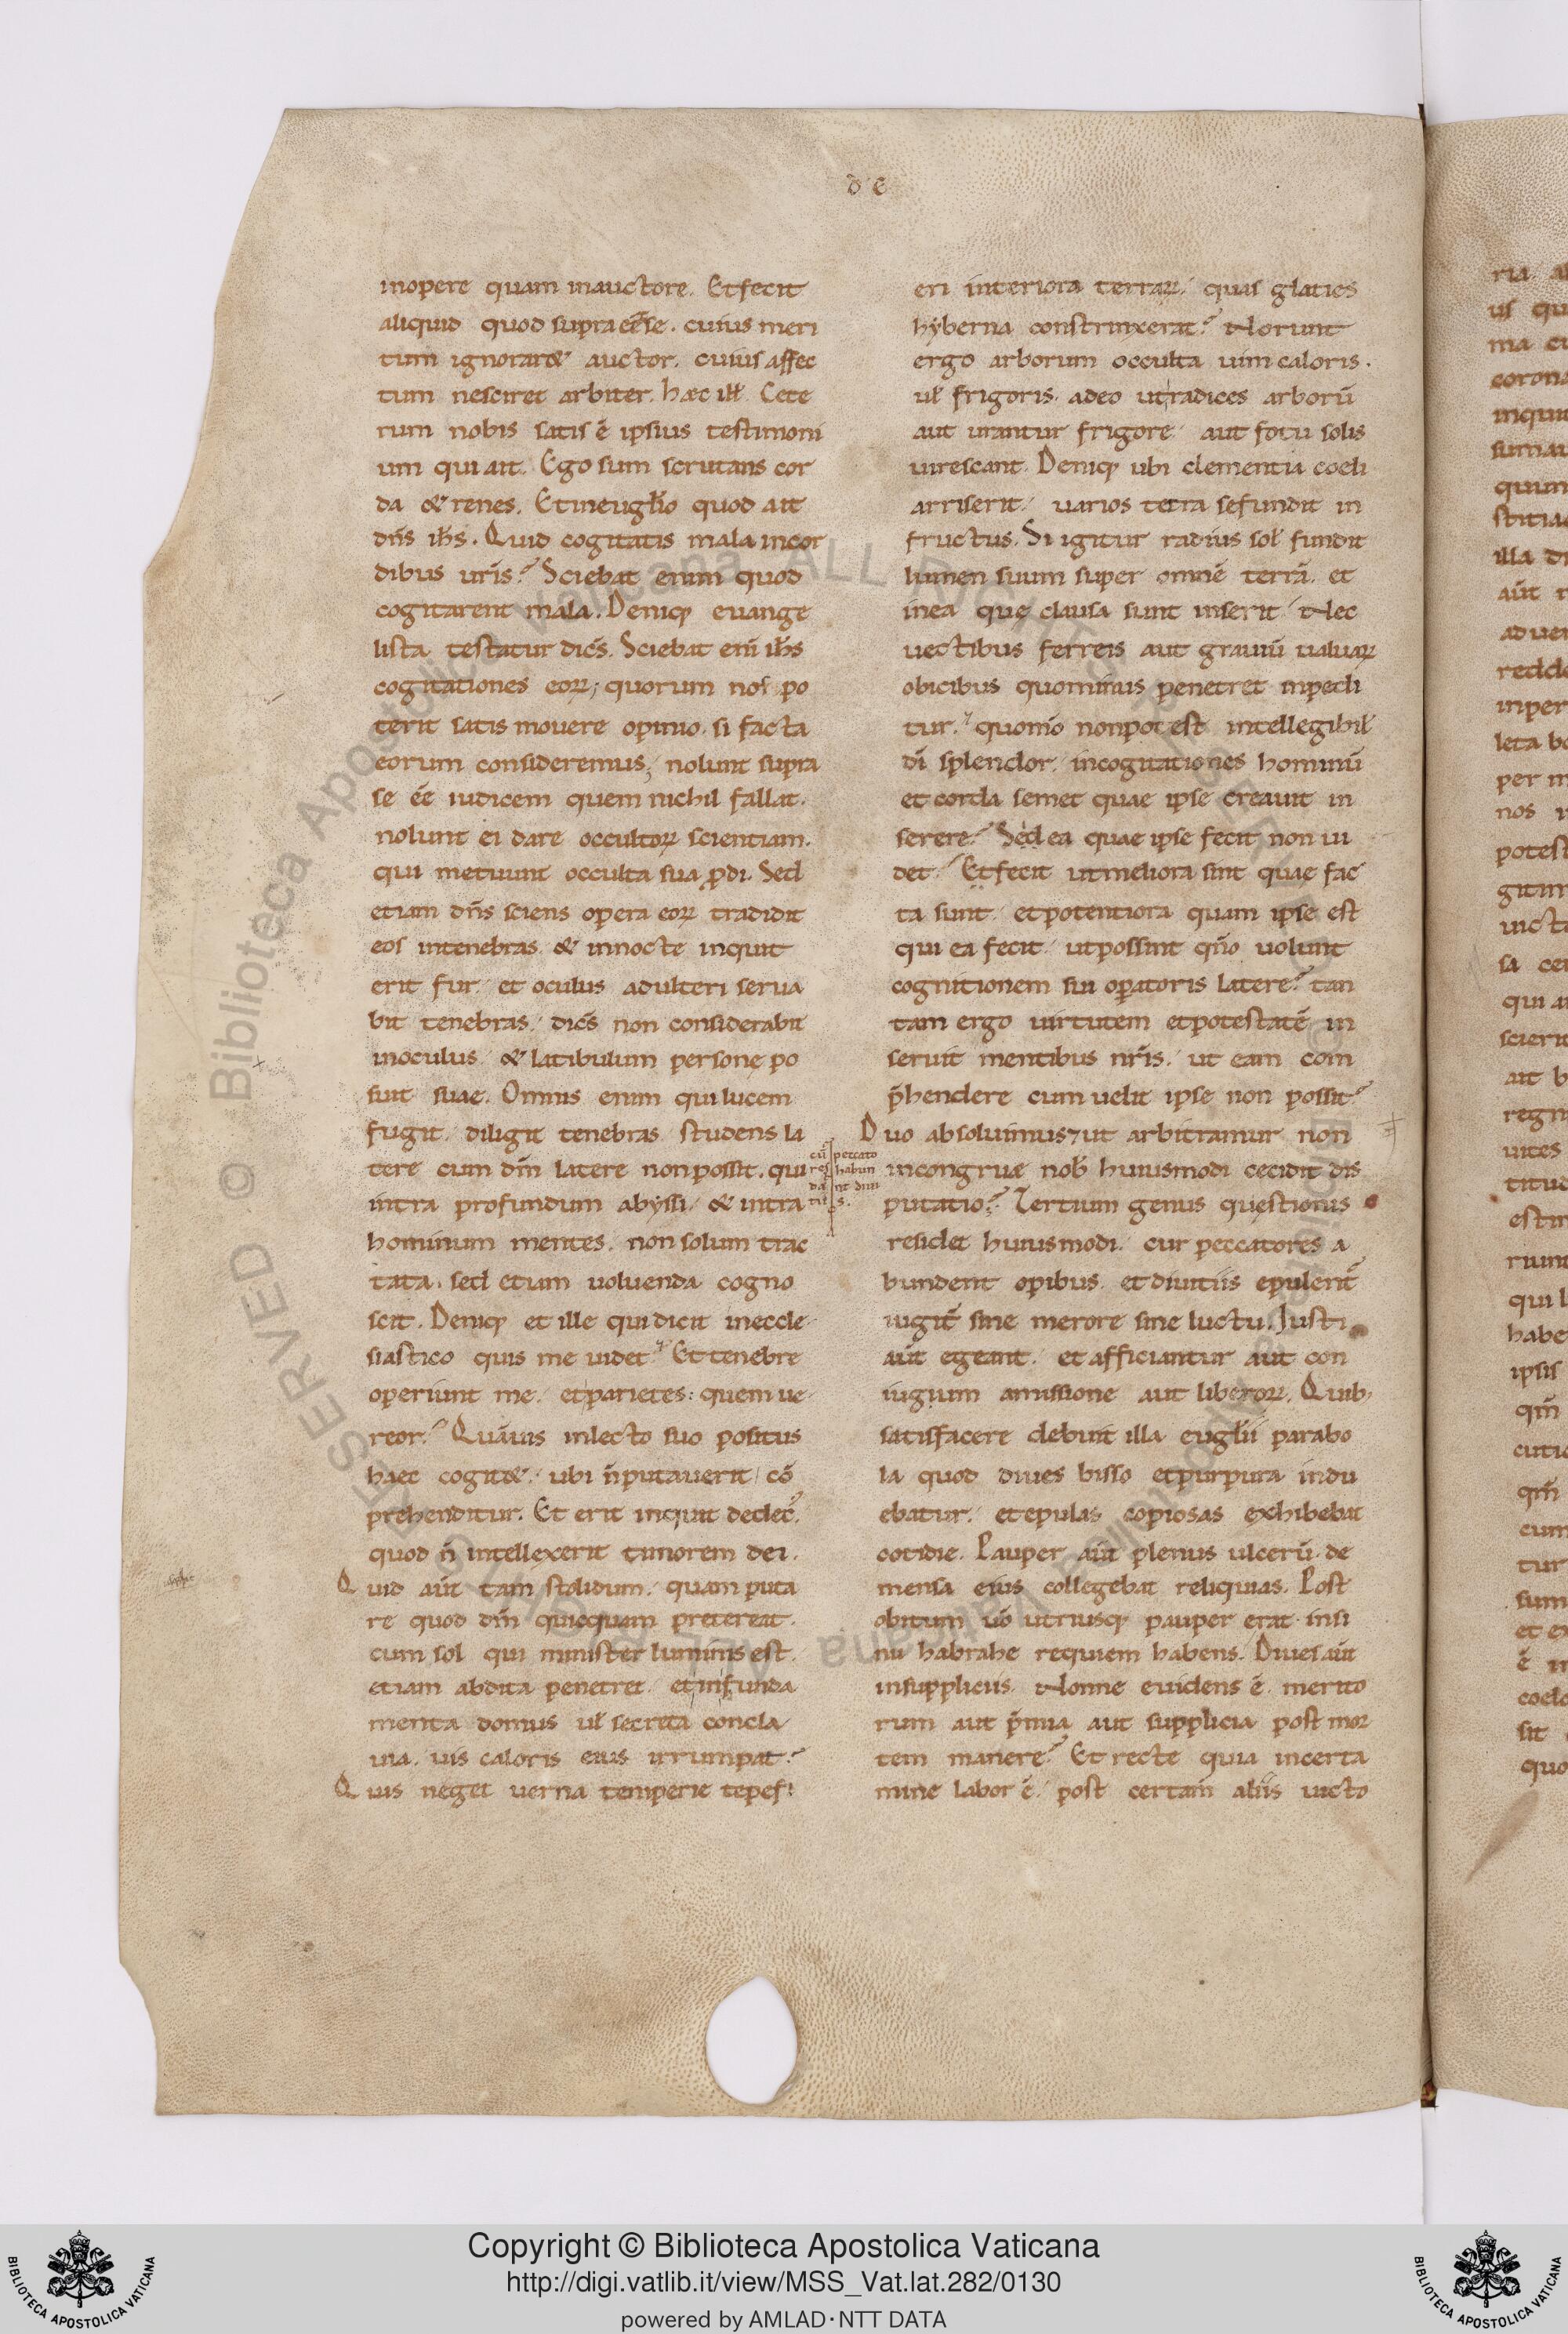 d E
inopere quam inauctore. Et fecit
aliquid quod supra eē̄ se. cuius meri
tum ignorar& auctor. cuius affec
tum nesciret arbiter. hæc ill̄. Cete
rum nobis satis ē ipsius testimoni
um qui ait. Ego sum scrutans cor
da & renes. Et ineuglio quod ait
dn̄s ih̄s. Quid cogitatis mala incor
dibus ur̄is? Sciebat enim quod
cogitarent mala. Deniq; euange
lista testatur dic̄s. Sciebat eni̅ ih̄s
cogitationes eoꝝ; quorum nos po
terit satis mouere opinio. si facta
eorum consideremus; nolunt supra
se ēe iudicem quem nichil fallat.
nolunt ei dare occultoꝝ scientiam.
qui metuunt occulta sua ꝓdi. Sed
etiam dn̄s sciens opera eoꝝ tradidit
eos intenebras. & innocte inquit
erit fur. et oculus adulteri serua
bit tenebras. dic̄s non considerabit
inoculus. & latibulum persone po
suit suae. Omnis enim qui lucem
fugit. diligit tenebras studens la
tere cum dm̄ latere non possit. qui
intra profundum abyssi. & intra
hominum mentes. non solum trac
tata. sed etiam uoluenda cogno
scit. Deniq; et ille qui dicit ineccle
siastico quis me uidet? Et tenebre
operiunt me. et parietes: quem ue
reor? Quāuis inlecto suo positus
haec cogit&. ubi n̄ putauerit. cō
prehenditur. Et erit inquit dedec̄.
quod n̄ intellexerit timorem dei.
Quid aūt tam stolidum. quam puta
re quod dm̄ quicquam pretereat.
cum sol qui minister luminis est.
etiam abdita penetret. et infunda
menta domus ul̄ secreta concla
uia. uis caloris eius irrumpat?
Quis neget uerna temperie tepef
cū peccato
res habun
da nt diui
tii s.
eri interiora terraꝝ. quas glaties
hyberna constrinxerat? Norunt
ergo arborum occulta uim caloris.
ul̄ frigoris. adeo ut radices arborū
aut urantur frigore. aut fotu solis
uirescant. Deniq; ubi clementia coeli
arriserit. uarios terra se fundit in
fructus. Si igitur radius sol̄ fundit
lumen suum super omnē terrā. et
inea quę clausa sunt inserit. Nec
uectibus ferreis aut grauiū ualuaꝝ
obicibus quominus penetret inpedi
tur? quomō non potest intellegibil̄
dī splendor. incogitationes hominū
et corda semet quae ipse creauit in
serere? Sed ea quae ipse fecit non ui
det? Et fecit ut meliora sint quae fac
ta sunt. et potentiora quam ipse est
qui ea fecit. ut possint qn̄o uolunt
cognitionem sui oꝑatoris latere? tan
tam ergo uirtutem et potestatē in
seruit mentibus nr̄is. ut eam com
p̄hendere cum uelit ipse non possit?
Duo absoluimus. ut arbitramur non
incongrue nob̄ huiusmodi cecidit dis
putatio. Tertium genus quęstionis
residet huiusmodi. cur peccatores a
bundent opibus. et diuitiis epulent̄
iugit̄ sine merore sine luctu. Justi
aūt egeant. et afficiantur aut con
iugium amissione aut liberoꝝ. Quib;
satisfacere debuit illa euglīi parabo
la quod diues bisso et purpura indu
ebatur. et epulas copiosas exhibebat
cotidie. Pauper aūt plenus ulcerū. de
mensa eius collegebat reliquias. Post
obitum uō utriusq; pauper erat. insi
nu habrahe requiem habens. Diues aūt
insuppliciis. Nonne euidens ē. merito
rum aut p̄mia aut supplicia post mor
tem manere? Et recte quia incerta
mine labor ē. post certam aliis uicto
© Biblioteca Apostolica Vaticana ALL RIGHTS RESERVED
Copyright © Biblioteca Apostolica Vaticana
http://digi.vatlib.it/view/MSS_Vat.lat.282/0130
powered by AMLAD·NTT DATA
BIBLIOTECA APOSTOLICA VATICANA
BIBLIOTECA APOSTOLICA VATICANA